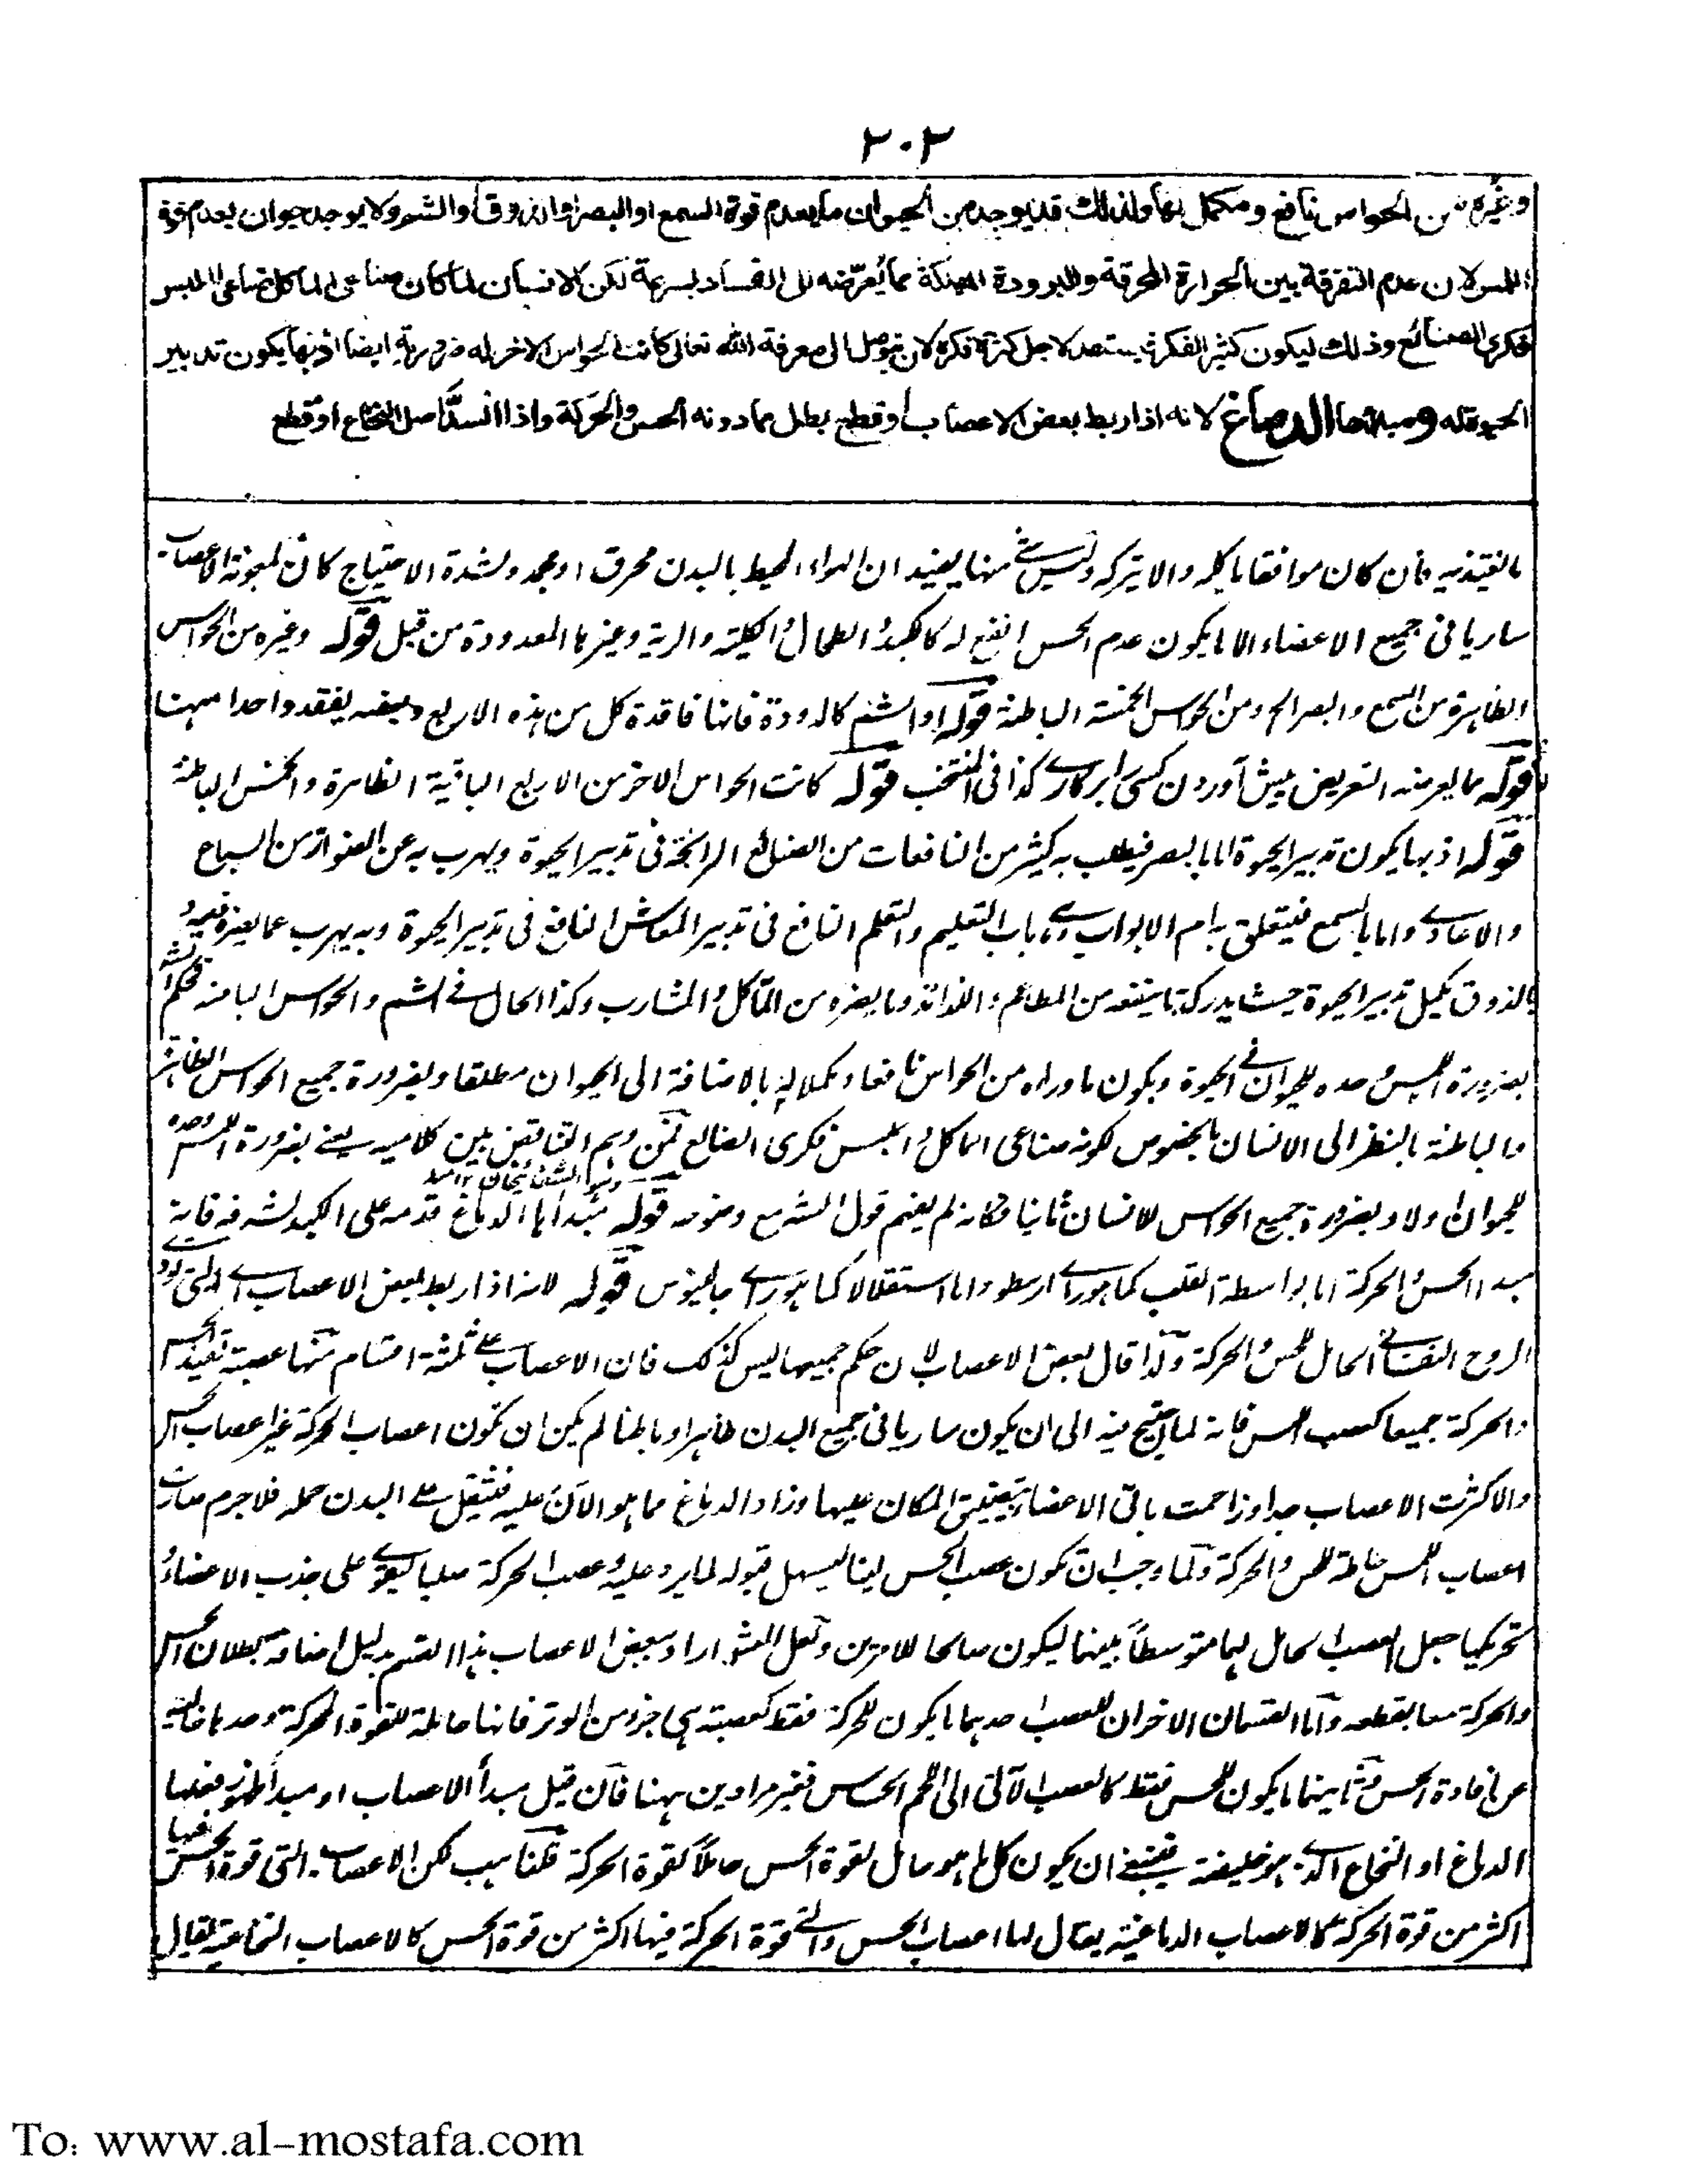 ٢٠٢
وغيره من الحواس نافع ومكمل لها ولذلك قد يوجد من الحيوان ما يعدم قوة السمع او البصر او الذوق او الشم ولا يوجد حيوان يعدم قوة
اللمس لان عدم التفرقة بين الحرارة المحرقة والبرودة المهلكة مما يعرّضه الى الفساد بسرعة لكن الانسان لما كان صناعي الماكل صناعي الملبس
فكري الصنائع وذلك ليكون كثير الفكرة يستعد لاجل كثرة فكره لان يتوصل الى معرفة الله تعالى كانت الحواس الاخر له ضرورية ايضا اذ بها يكون تدبير
الحيوة له ومبدأها الدماغ لانه اذا ربط بعض الاعصاب او قطع بطل مما دونه الحس والحركة واذا انسدّ اصل النخاع او قطع
ما لتغتذيه فان كان موافقا ياكله والا يتركه وليس شئ منها يفيد ان الهواء المحيط بالبدن محرق او مجمد ولشدة الاحتياج كان لمعونة الاعصاب
ساريا فى جميع الاعضاء الا ما يكون عدم الحس انفع له كالكبد والطحال والكلية والرية وغيرها المعدودة من قبل قوله وغيره من الحواس
الظاهرة من السمع والبصر الخ ومن الحواس الخمسة الباطنة قوله او الشم كالدودة فانها فاقدة كل من هذه الاربع وبعضه يفقد واحدا منها
قوله مما يعرضه التعريض پيش آوردن كسى را بر كارے كذا فى المنتخب قوله كانت الحواس الاخر من الاربع الباقية الظاهرة والخمس الباطنة
قوله اذ بها يكون تدبير الحيوة اما بالبصر فيطلب به كثير من النافعات من الصنائع الرابحة فى تدبير الحيوة ويهرب به عن الضوار من السباع
والاعادے واما بالسمع فيتعلق بام الابواب وهى باب التعليم والتعلم النافع فى تدبير المعاش النافع فى تدبير الحيوة وبه يهرب عما يضره
بالذوق يكمل تدبير الحيوة حيث يدرك به ما ينفعه من المطاعم والغذائذ وما يضره من المآكل والمشارب وكذا الحال فى الشم والحواس الباطنة فحكم
بضرورة اللمس وحده للحيوان فى الحيوة ويكون ما وراءه من الحواس نافعا ومكملا له بالاضافة الى الحيوان مطلقا وبضرورة جميع الحواس الظاهرة
والباطنة بالنظر الى الانسان بالخصوص لكونه صناعى الماكل والملبس فكرى الصنائع فمن وهم التناقض بين كلاميه يعنى بضرورة اللمس وحده
للحيوان اولا وبضرورة جميع الحواس للانسان ثانيا فكانه لم يفهم قول الشرح ومنوعه قوله مبدأها الدماغ قدمه على الكبد لشرفه فانه
مبدء الحس والحركة اما بواسطة القلب كما هو راے ارسطو واما استقلالا كما هو راے جالينوس قوله لانه اذا ربط بعض الاعصاب التى
الروح النفسانى الحامل للحس والحركة وانما قال بعض الاعصاب لان حكم جميعها ليس كذلك فان الاعصاب على ثلثة اقسام منها عصبة تفيد الحس
والحركة جميعا كعصب اللمس فانه لما احتيج فيه الى ان يكون ساريا فى جميع البدن ظاهرا وباطنا لم يكن ان تكون اعصاب الحركة غير اعصاب الحس
والا كثرت الاعصاب جدا وزاحمت باقى الاعضاء بتضييق المكان عليها وزاد الدماغ مما هو الآن عليه فيثقل على البدن حمله فلا جرم صارت
اعصاب اللمس حاملة للحس والحركة ولما وجب ان تكون عصب الحس لينا ليسهل قبوله لما يرد عليه وعصب الحركة صلبا ليقوى على جذب الاعضاء
وتحريكها جعل العصب الحامل لهما متوسطاً بينهما ليكون صالحا للامرين ولعل الشارح اراد ببعض الاعصاب هذا القسم بدليل اضافة بطلان الحس
والحركة معا بقطعه واما القسمان الاخران للعصب احدهما ما يكون للحركة فقط كعصبة هى جزء من الوتر فانها حاملة للقوة المحركة وحدها خالية
عن افادة الحس وثانيهما ما يكون للحس فقط كالعصب الآتى الى اللحم الحساس فغير مرادين ههنا فان قيل مبدأ الاعصاب او مبدأ ظهور فعلها
الدماغ او النخاع الذى هو خليفته فينبغى ان يكون كل ما هو حامل لقوة الحس حاملاً لقوة الحركة قلنا يجب لكن الاعصاب التى قوة الحس فيها
اكثر من قوة الحركة كالاعصاب الدماغية يقال لها اعصاب الحس والتى قوة الحركة فيها اكثر من قوة الحس كالاعصاب النخاعية يقال
To: www.al-mostafa.com